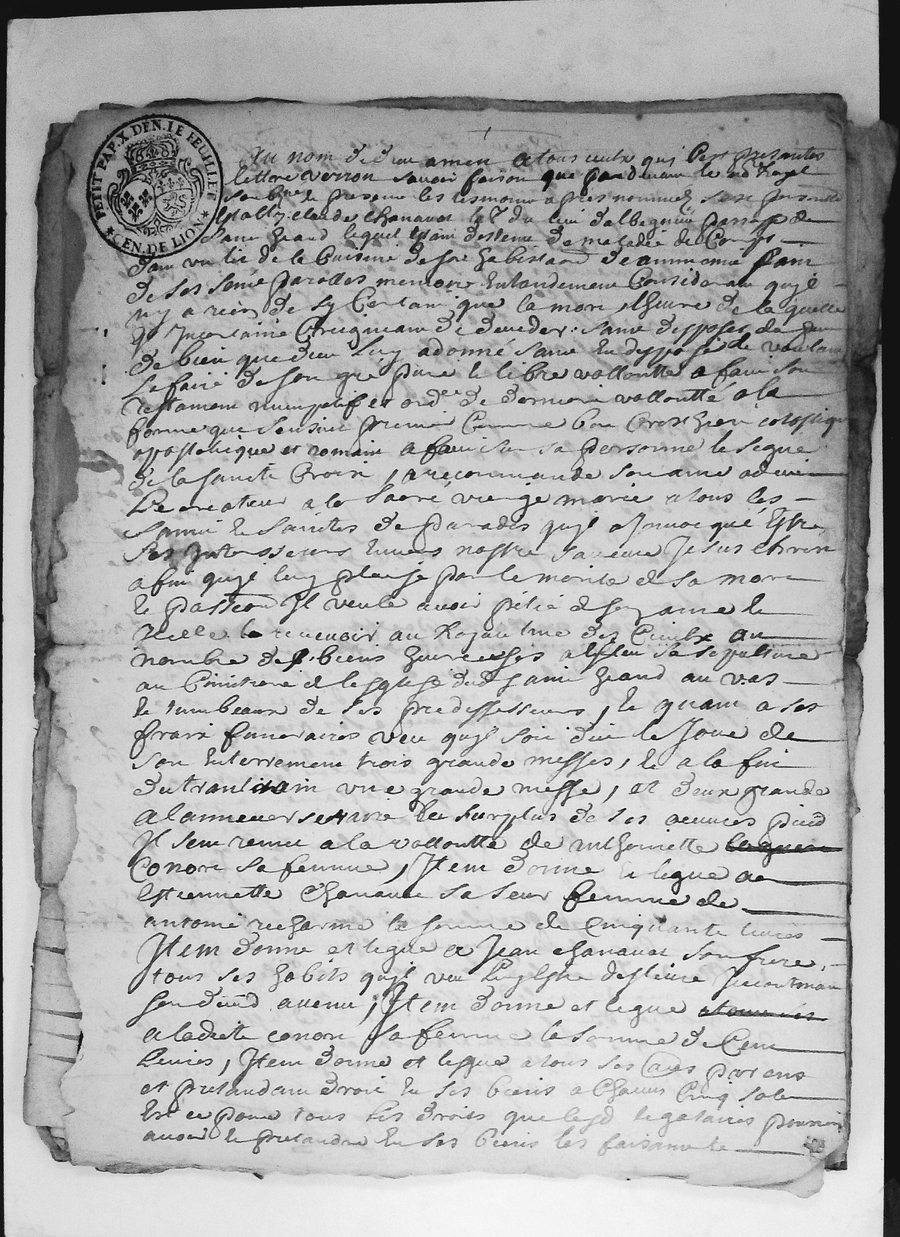 PETIT PAP. X DEN. LE FEUILLET
GEN. DE LION
Au nom de dieu amen a tous ceulx qui ces presantes
lettres verron savoir faison que pardevant le no.re Royal
soub.ne et presans les tesmoins apres nommes sest presanté
estably claude chanavat du lieu d'albegnieu parroisse de
saint heand lequel estant detenu de maladie de Corps
dans un lit de la Cuisine de son habitation neanmoins sain
de ses sens parolles memoire Entandement Considerant quil
ny a rien de sy Certain que la mort, lheure de la quelle
Incertaine Creignant de deceder sans disposer de
de bien que dieu luy a donné sans En disposé et voulant
Le faire de son gre pure et libre vollontté a fait son
testament nuncupatif et ord.ce de derniere vollontté a la
forme que sensuit premier Comme bon Crestien catolique
appostolique et romain a fait sur sa personne le signe
de la saincte Croix, a recommandé son ame a dieu
Le createur a la sacre vierge marie a tous les
saints et sainctes de paradis quil a Invoqué Estre
ses Intersseseurs Envers nostre sauveur Jesus christ
a fin quil luy plaise par le merite de sa mort
et passion Il veule avoir pitié de son ame et
Icelle recevoir au Royaulme des Cieulx au
nombre des biens heureuses a Esleu sa sepulture
au Cimitiere de lesglise dud saint heand au vas
et tumbeaux de ses predessesseurs, et quant a ses
fraix funeraires veu quil soit dit le Jour de
son Enterrement trois grande messes, et a la fin
du trantain une grande messe, et deux grande
a lanneversaire Le surplus de ses oeuvres pies
Il sen remet a la vollontté de anthoinette
Conort sa femme, Item donne et legue a
Estiennette Chanavat sa seur femme de
antoine richarme la somme de Cinquante livres
Item donne et legue a Jean chanavat son frere
tous ses habits
son deced avenu, Item donne et legue
a ladite conort sa femme la somme de Cent
Livres, Item donne et legue a tous ses autres parans
et pretandant droit En ses biens a chacun Cinq sols
Et ce pour tous les droits que lesd legataires pourroient
avoir et pretandre En ses biens les faisant et